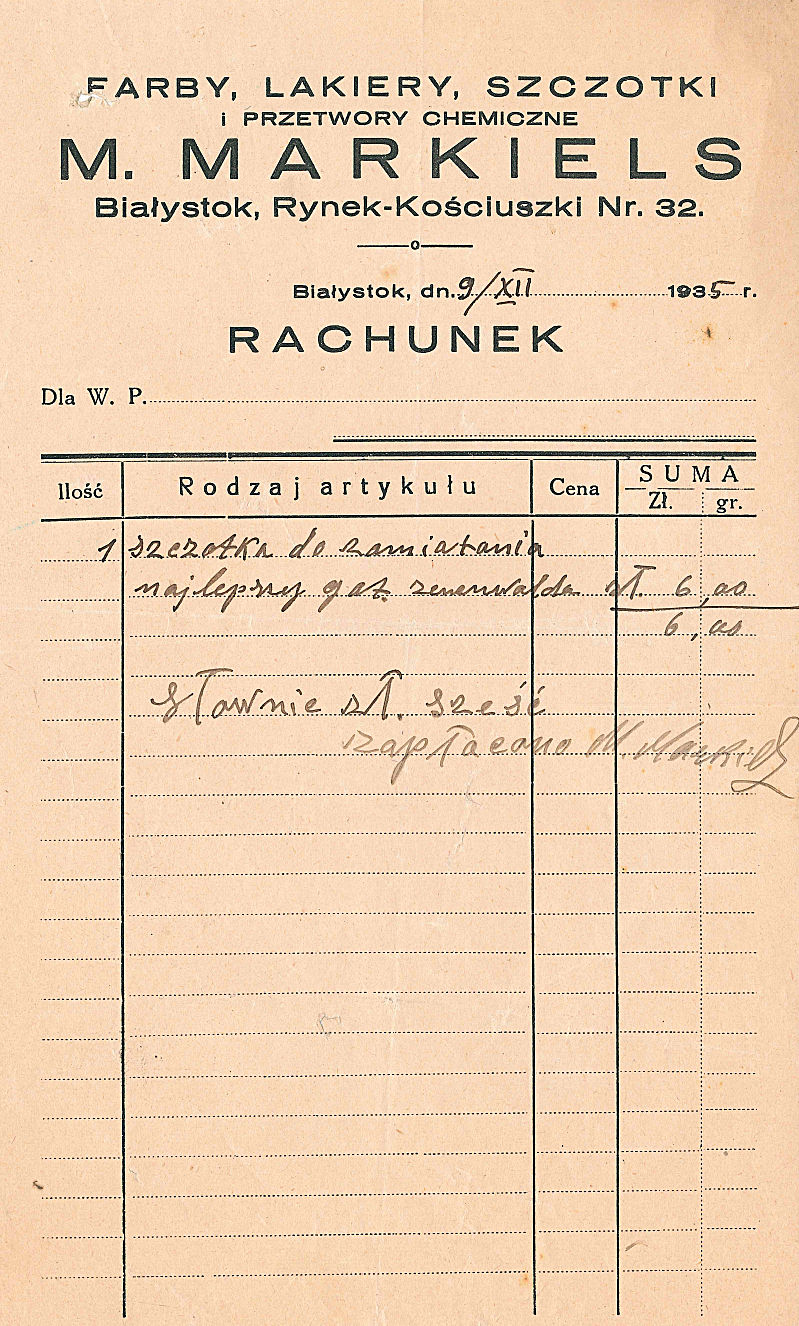 FARBY, LAKIERY, SZCZOTKI
i PRZETWORY CHEMICZNE
M. MARKIELS
Białystok, Rynek-Kościuszki Nr. 32.
Białystok, dn. 9/XII 1935 r.
RACHUNEK
Dla W. P.
Ilość Rodzaj artykułu Cena SUMA
Zł. gr.
1 szczotka do zamiatania
najlepszy gat. zł. 6,00
6,00
Słownie zł. sześć
zapłacono M. Markiels